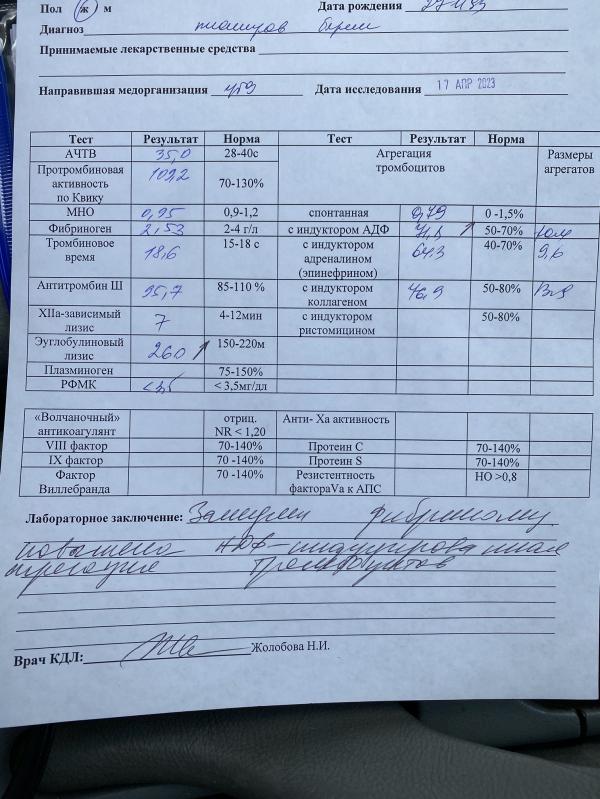 Пол ж м Дата рождения
Диагноз планиров берем
Принимаемые лекарственные средства
Направившая медорганизация Дата исследования 17 АПР 2023
Тест Результат Норма Тест Результат Норма Размеры агрегатов
АЧТВ 35,0 28-40с Агрегация тромбоцитов
Протромбиновая активность по Квику 109,2 70-130%
МНО 0,95 0,9-1,2 спонтанная 0,79 0 -1,5%
Фибриноген 2,53 2-4 г/л с индуктором АДФ 50-70%
Тромбиновое время 18,6 15-18 с с индуктором адреналином (эпинефрином) 64,3 40-70% 9,6
Антитромбин Ш 95,7 85-110 % с индуктором коллагеном 76,9 50-80%
XIIа-зависимый лизис 7 4-12мин с индуктором ристомицином 50-80%
Эуглобулиновый лизис 260 150-220м
Плазминоген 75-150%
РФМК <3,5 < 3,5мг/дл
«Волчаночный» антикоагулянт отриц. NR < 1,20 Анти- Ха активность
VIII фактор 70-140% Протеин С 70-140%
IX фактор 70 -140% Протеин S 70-140%
Фактор Виллебранда 70 -140% Резистентность фактораVa к АПС НО >0,8
Лабораторное заключение: Замедлен
повышена АДФ-индуцированная
агрегация тромбоцитов
Врач КДЛ: Жолобова Н.И.